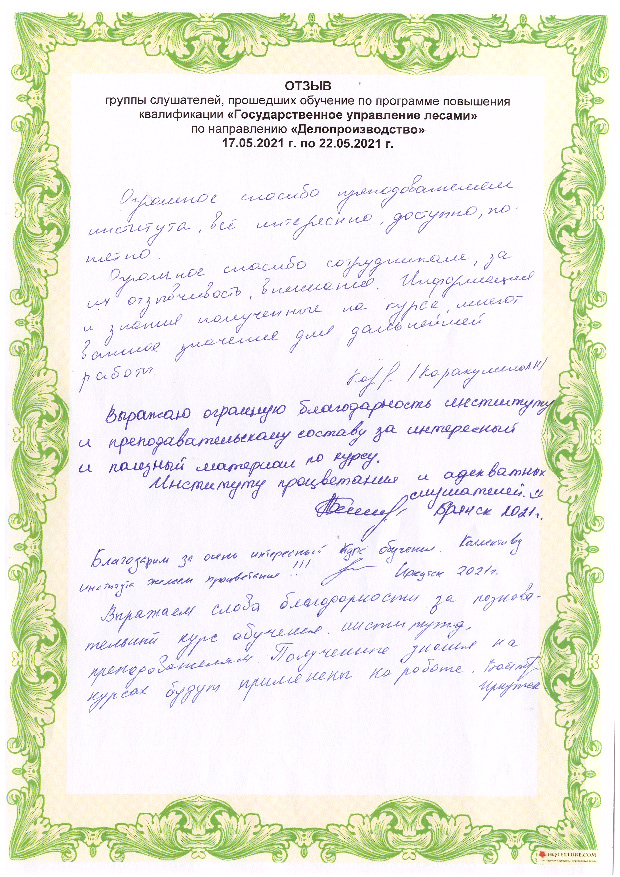 ОТЗЫВ
группы слушателей, прошедших обучение по программе повышения
квалификации «Государственное управление лесами»
по направлению «Делопроизводство»
17.05.2021 г. по 22.05.2021 г.
Огромное спасибо преподавателям
института, всё интересно, доступно, по-
нятно.
Огромное спасибо сотрудникам, за
их отзывчивость, внимание. Информация
и знания полученные на курсе, имеют
важное значение для дальнейшей
работы
Выражаю огромную благодарность институту
и преподавательскому составу за интересный
и полезный материал по курсу.
Институту процветания и адекватных
слушателей.
Брянск 2021г.
Благодарим за очень интересный курс обучения. Коллективу
института желаем процветания!!! Иркутск 2021г.
Выражаем слова благодарности за познава-
тельный курс обучения. институту,
преподавателям. Полученные знания на
курсах будут применены на работе.
Иркутск